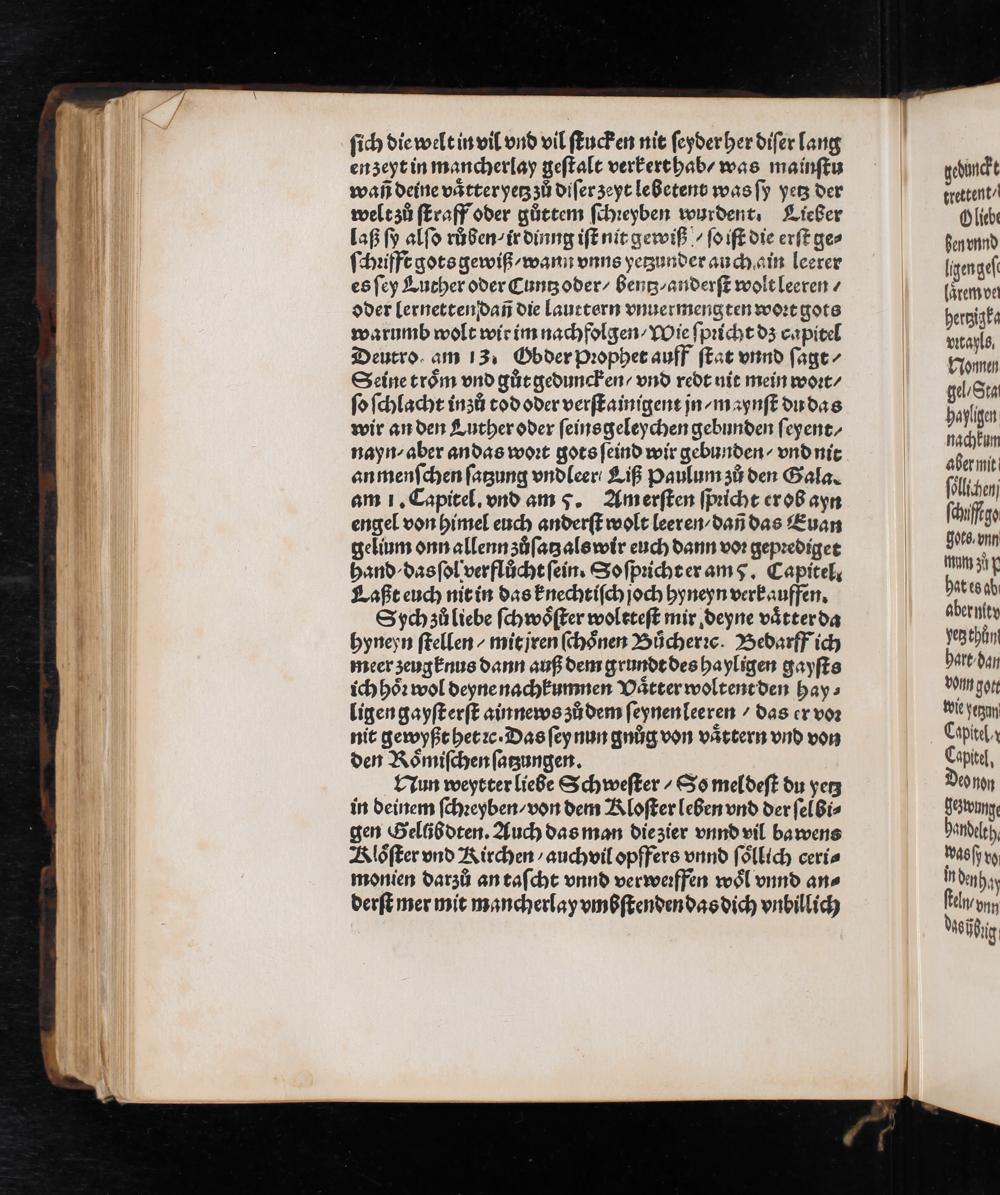 sich die welt in vil vnd vil stucken nit seyder her diser lang
en zeyt in mancherlay gestalt verkert hab/ was mainstu
wañ deine vaͤtter yetz zuͦ diser zeyt lebetent was sy yetz der
welt zuͦ straff oder guͦttem schreyben wurdent. Lieber
laß sy also ruͦben/ ir dinng ist nit gewiß / so ist die erst ge⸗
schrifft gots gewiß/ wann vnns yetzunder auch ain leerer
es sey Luther oder Cuntz oder/ bentz/ anderst wolt leeren /
oder lernetten dañ die lauttern vnuermengten wort gots
warumb wolt wir im nachfolgen/ Wie spricht dz capitel
Deutro. am 13. Ob der Prophet auff stat vnnd sagt/
Seine troͤm vnd guͦt geduncken/ vnd redt nit mein wort/
so schlacht in zuͦ tod oder verstainigent jn/ maynst du das
wir an den Luther oder seins geleychen gebunden seyent/
nayn/ aber an das wort gots seind wir gebunden/ vnd nit
an menschen satzung vnd leer/ Liß Paulum zuͦ den Gala.
am 1. Capitel. vnd am 5. Am ersten spricht er ob ayn
engel von himel euch anderst wolt leeren/ dañ das Euan
gelium onn allenn zuͦsatz als wir euch dann vor geprediget
hand/ das sol verfluͦcht sein. So spricht er am 5. Capitel.
Laßt euch nit in das knechtisch joch hyneyn verkauffen.
Sych zuͦ liebe schwoͤster woltest mir deyne vaͤtter da
hyneyn stellen / mit jren schoͤnen Buͤcher ꝛc. Bedarff ich
meer zeugknus dann auß dem grundt des hayligen gaysts
ich hoͤr wol deyne nachkumnen Vaͤtter woltent den hay⸗
ligen gayst erst ain news zuͦ dem seynen leeren / das er vor
nit gewyßt het ꝛc. Das sey nun gnuͦg von vaͤttern vnd von
den Roͤmischen satzungen.
Nun weytter liebe Schwester / So meldest du yetz
in deinem schreyben/ von dem Kloster leben vnd der selbi⸗
gen Geluͤbdten. Auch das man die zier vnnd vil bawens
Kloͤster vnd Kirchen / auch vil opffers vnnd soͤllich ceri⸗
monien darzuͦ an tascht vnnd verwerffen woͤl vnnd an⸗
derst mer mit mancherlay vmbstenden das dich vnbillich

gedunckt
trettent/
O liebe
ben vnnd
ligen gesc
lärem ver
hertzigk
vrtayls.
Nonnen
gel/ Sta
hayligen
nachkum
aber mit
soͤllichen
schrifft go
gots. vnn
mum zuͦ p
hat es ab
aber nit v
yetz thuͦn
hart dan
vonn gott
wie yetzun
Capitel. v
Capitel.
Deo non
gezwunge
handelt h
was sy vo
in den hay
steln/ vnn
das uͤbrig